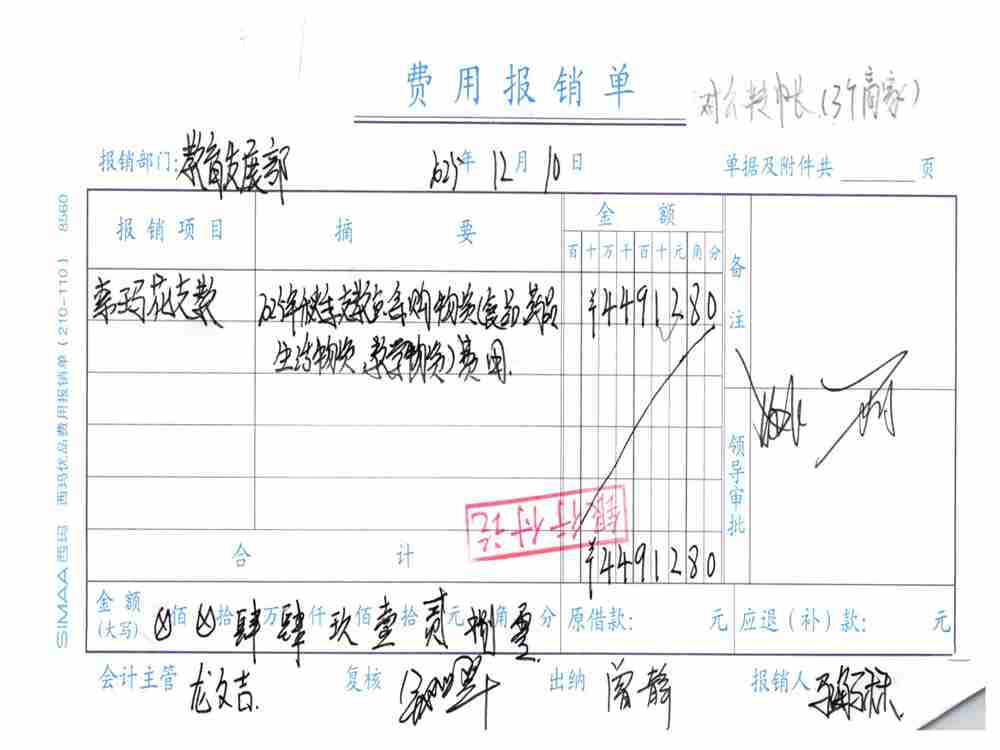 费用报销单
对公转帐(3个商家)
报销部门:教育发展部 2025年 12月 10日 单据及附件共 页
报销项目 摘 要 金 额 备注
百十万千百十元角分
索玛花支教 2025年秋季支教点采购物资(食品、药品 ¥4491280
生活物资、教学物资)费用.
领导审批
银行付讫
合 计 ¥4491280
金额(大写) ⊗佰⊗拾肆万肆仟玖佰壹拾贰元捌角零分 原借款: 元 应退(补)款: 元
会计主管 龙文吉 复核 出纳 曾静 报销人
SIMAA西玛 西玛优品费用报销单(210-110) 8560